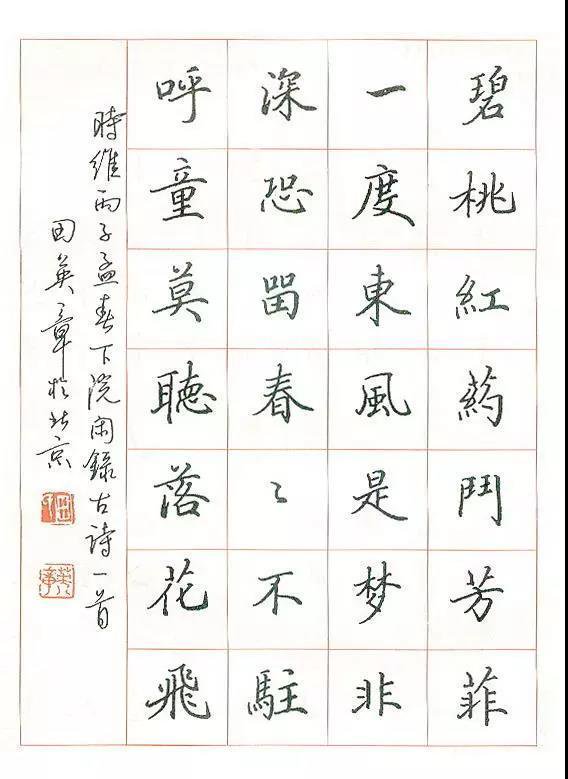 碧桃紅葯鬥芳菲
一度東風是梦非
深恐㽞春〻不駐
呼童莫聽落花飛
時維丙子孟春下浣闲錄古诗一首
田英章於北京